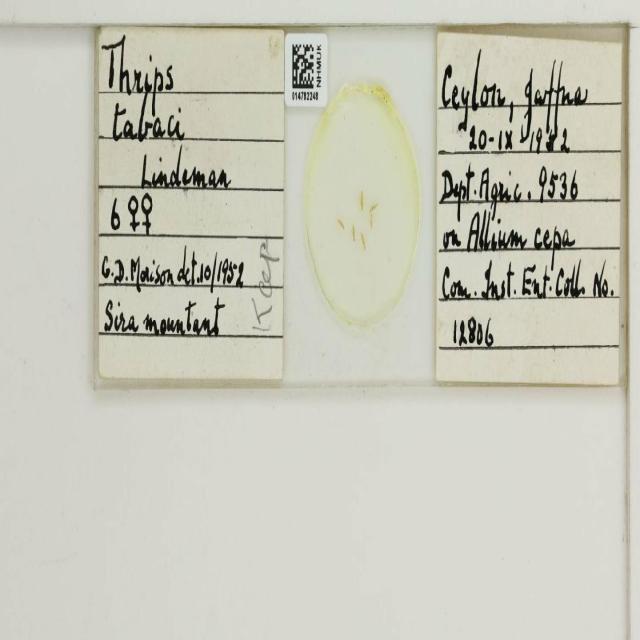 Thrips
tabaci
Lindeman
6 ♀♀
G.D. Morison det. 10/1952
Sira mountant
Keep
NHMUK
014782248
Ceylon, Jaffna
20-IX-1952
Dept. Agric. 9536
on Allium cepa
Com. Inst. Ent. Coll. No.
12806